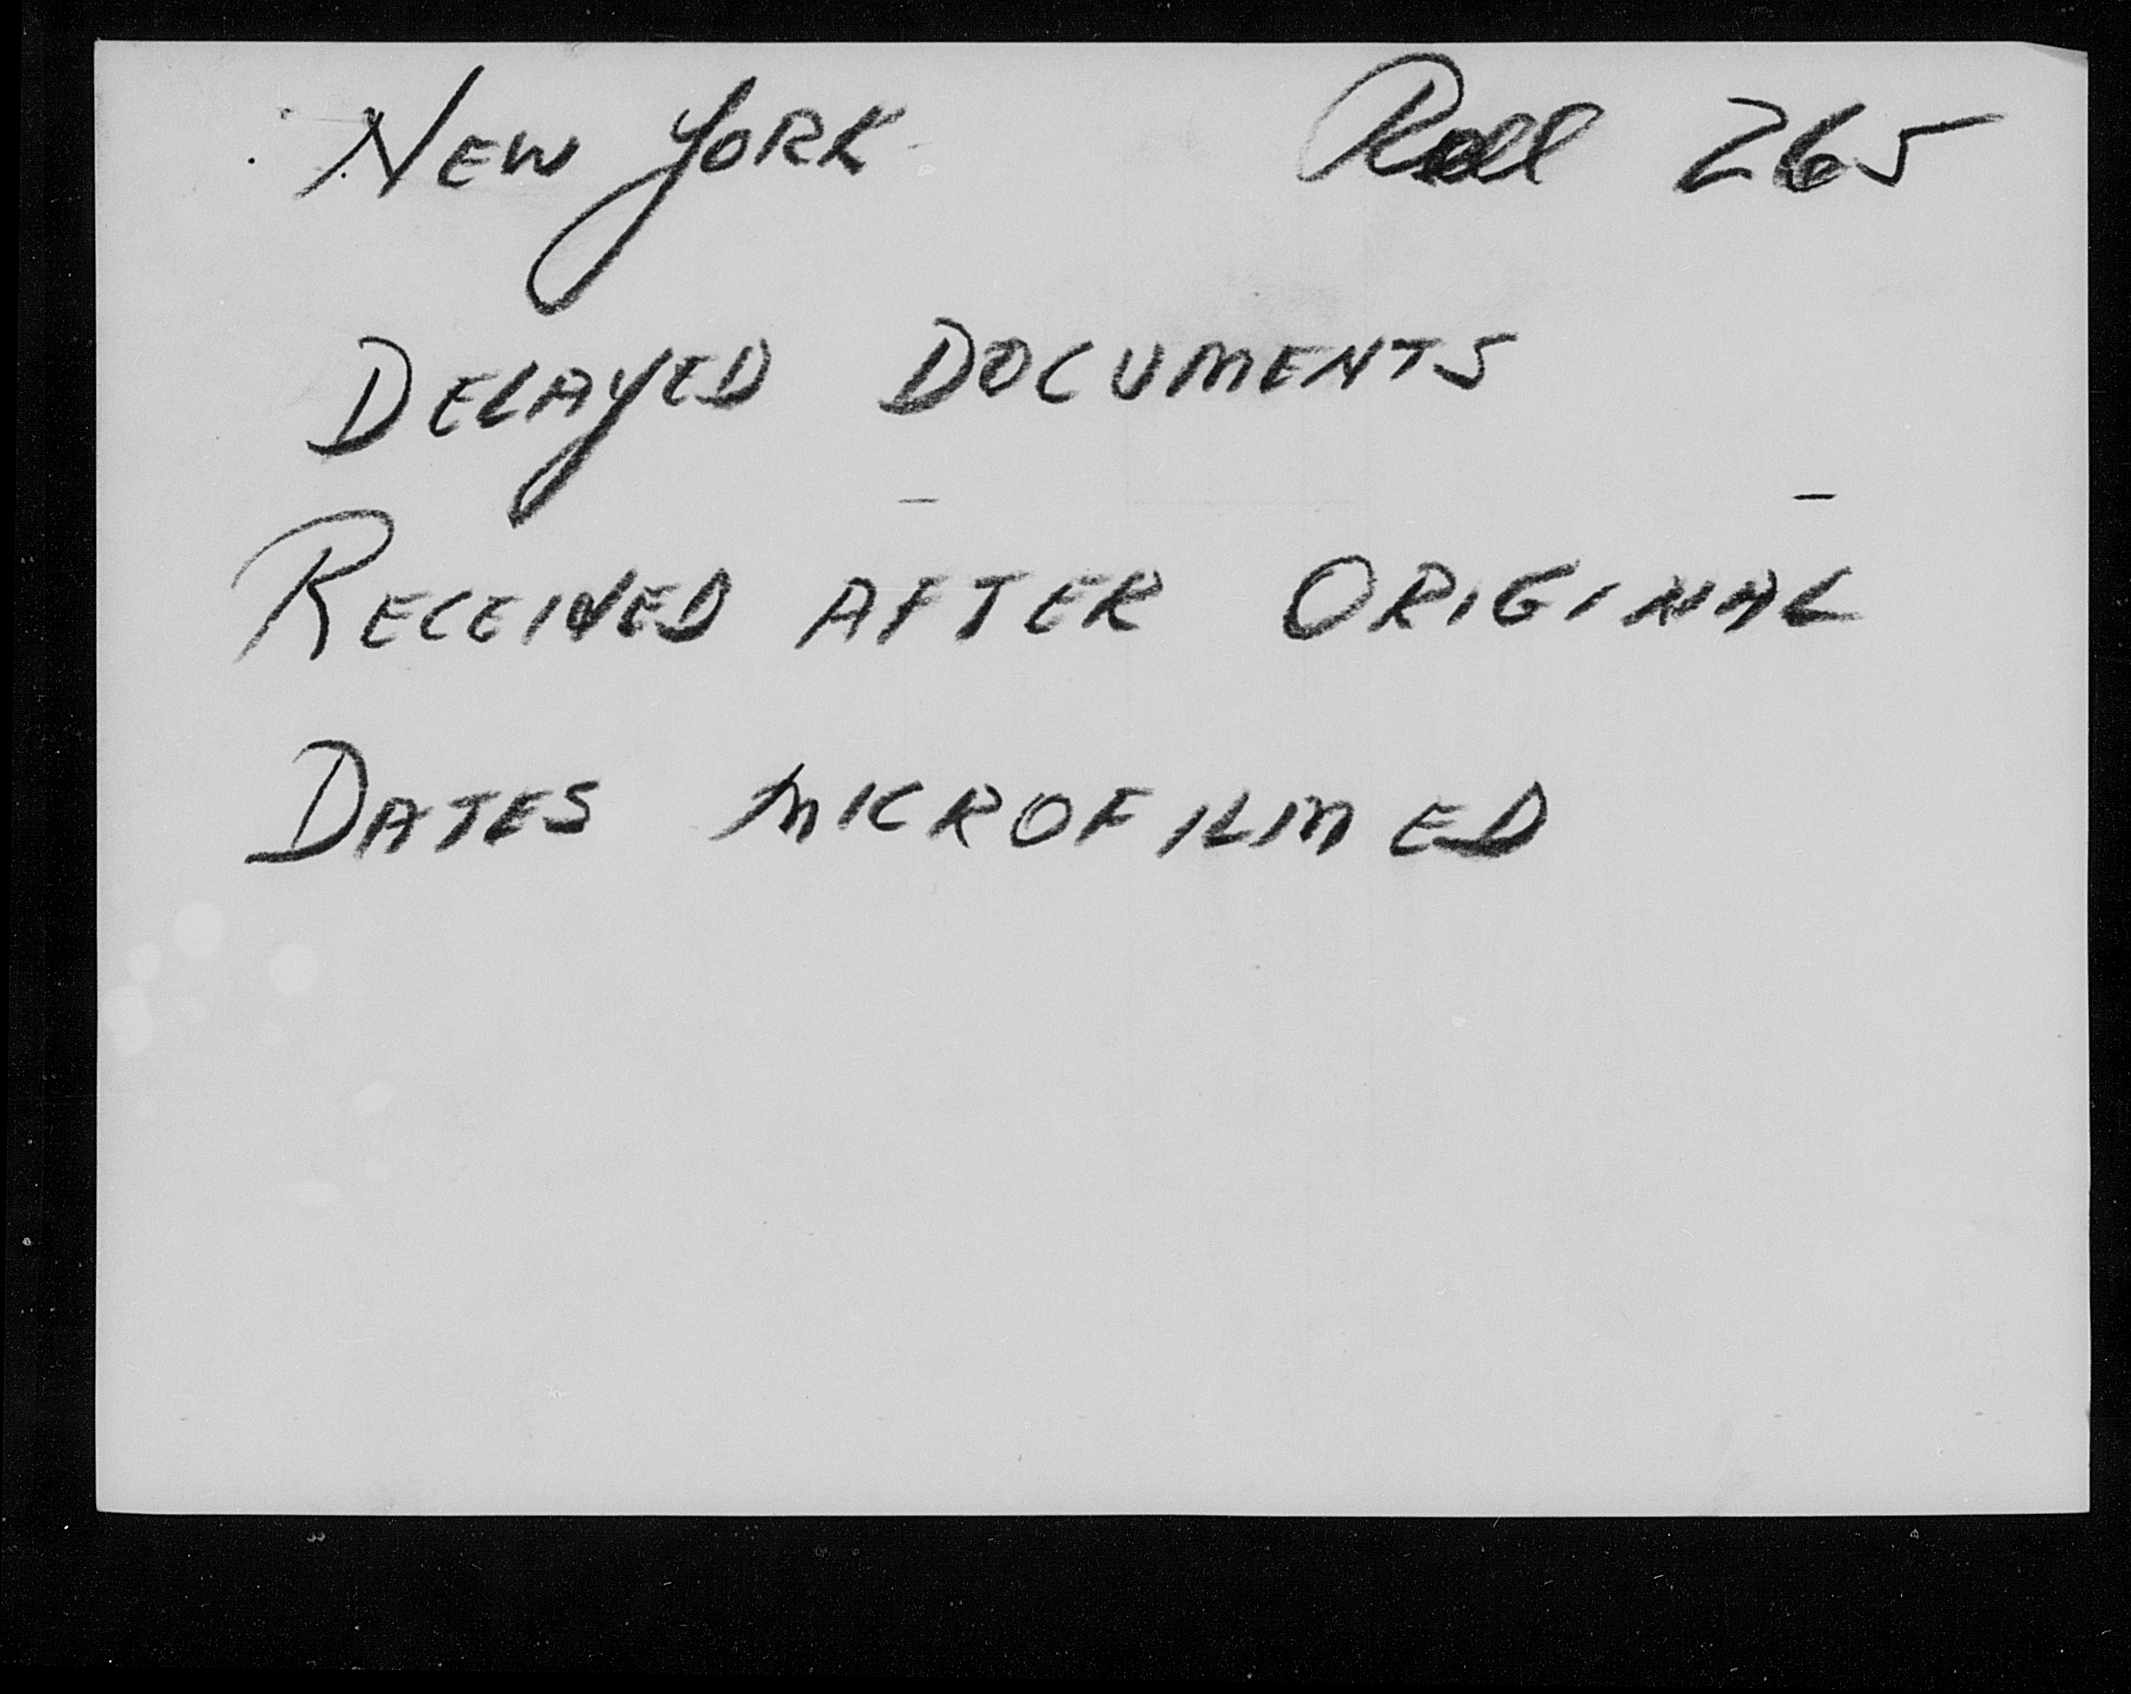 NEW YORK Roll 265
DELAYED DOCUMENTS
RECEIVED AFTER ORIGINAL
DATES MICROFILMED